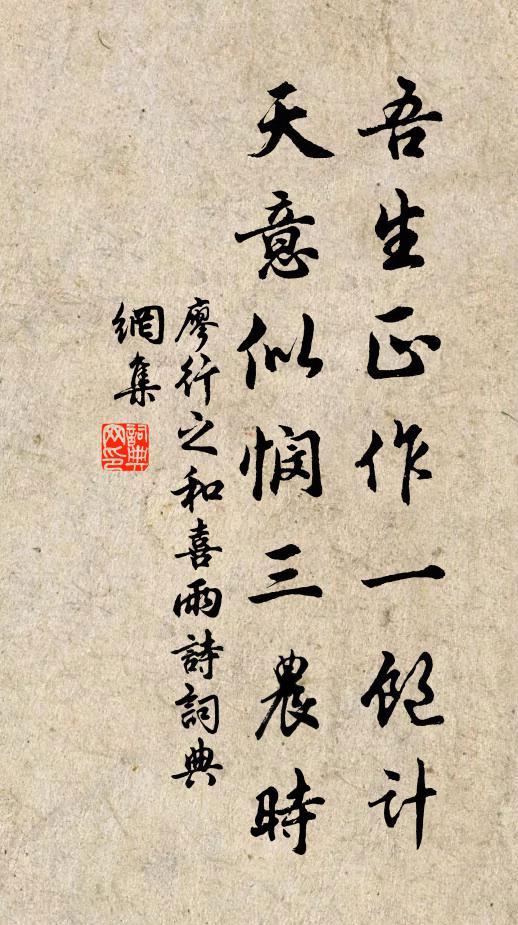 吾生正作一飽計
天意似憫三農時
廖行之和喜雨詩詞典
網集
詞典
网印